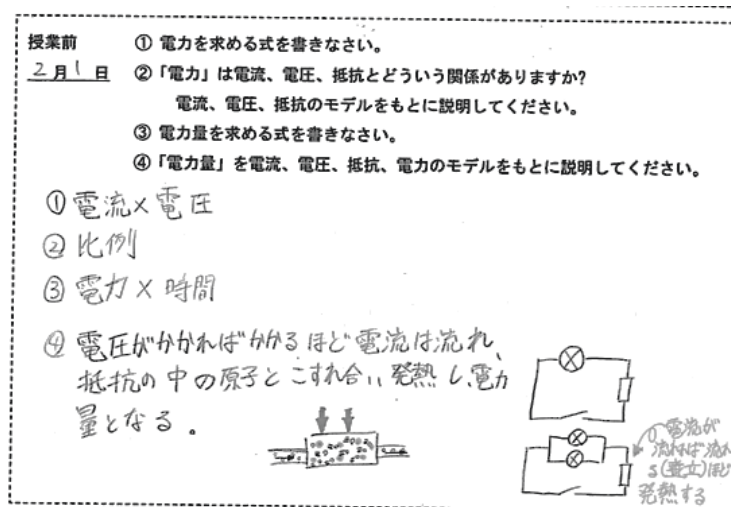 授業前 ① 電力を求める式を書きなさい。
2月1日 ② 「電力」は電流、電圧、抵抗とどういう関係がありますか?
電流、電圧、抵抗のモデルをもとに説明してください。
③ 電力量を求める式を書きなさい。
④ 「電力量」を電流、電圧、抵抗、電力のモデルをもとに説明してください。
① 電流×電圧
② 比例
③ 電力×時間
④ 電圧がかかればかかるほど電流は流れ、
抵抗の中の原子とこすれ合い、発熱し、電力
量となる。
電流が
流れれば流れ
るほど
発熱する